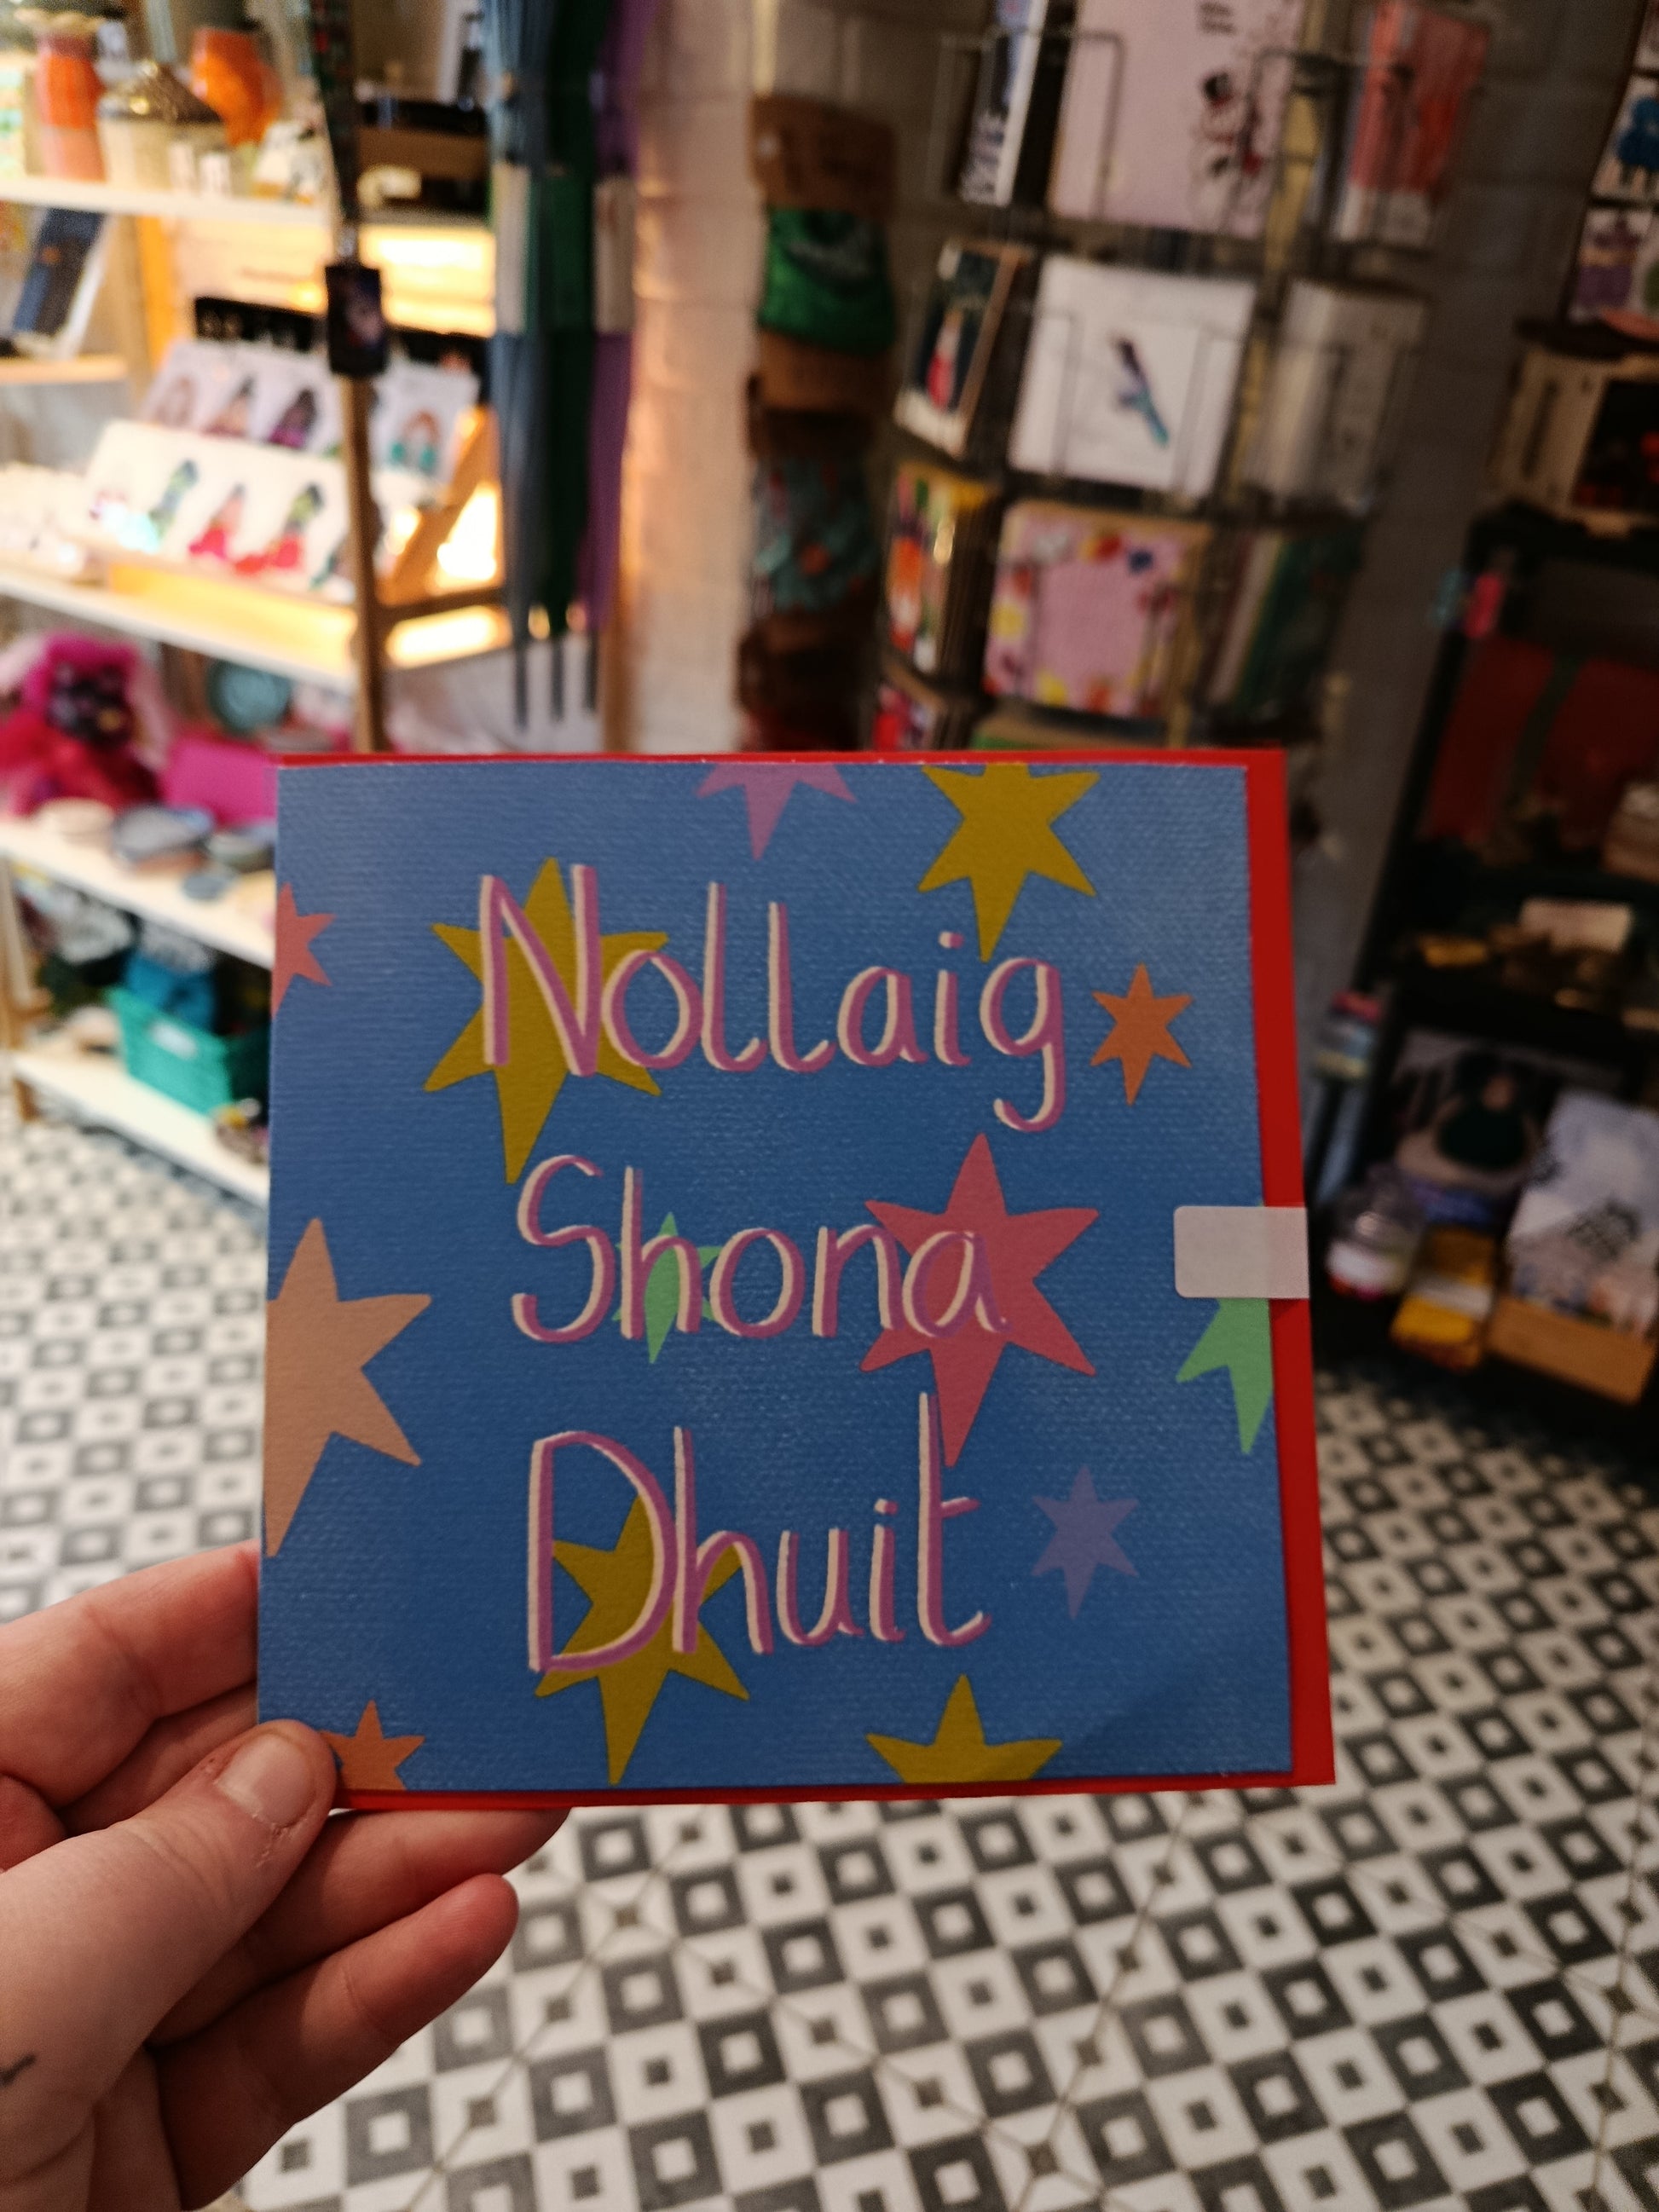 Nollaig
Shona
Dhuit